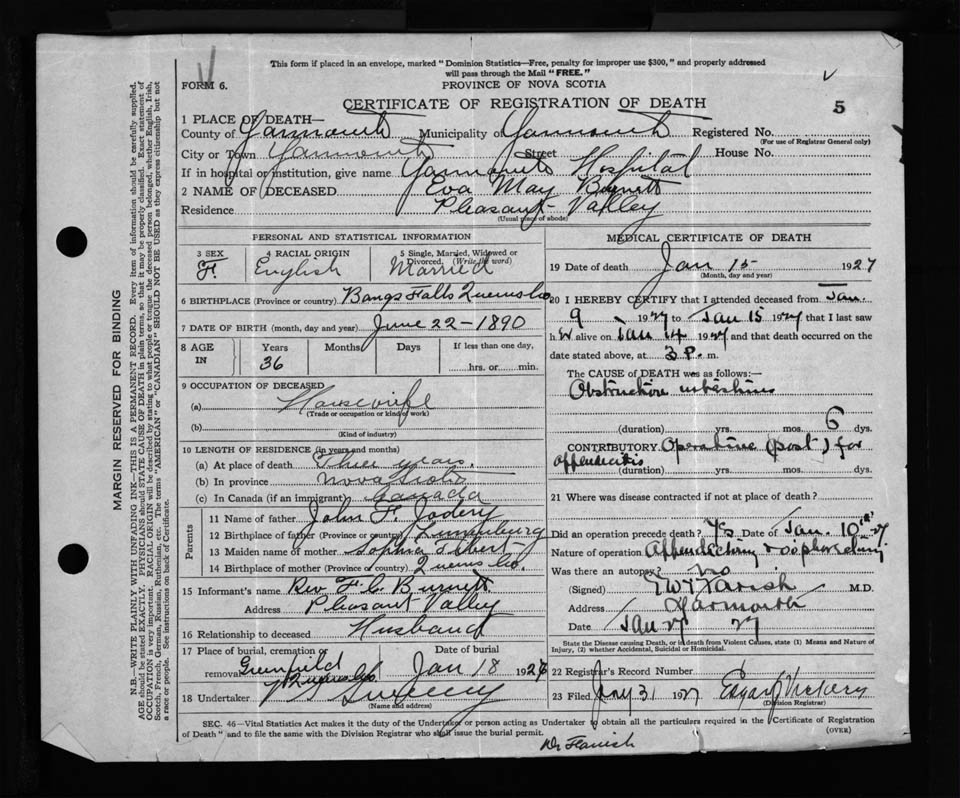 This form if placed in an envelope, marked "Dominion Statistics—Free, penalty for improper use $300," and properly addressed
will pass through the Mail "FREE."
FORM 6.
PROVINCE OF NOVA SCOTIA
CERTIFICATE OF REGISTRATION OF DEATH
5
1 PLACE OF DEATH—
County of Yarmouth Municipality of Yarmouth Registered No.
(For use of Registrar General only)
City or Town Yarmouth Street House No.
If in hospital or institution, give name Yarmouth Hospital
2 NAME OF DECEASED Eva May Burnett
Residence Pleasant Valley
(Usual place of abode)
PERSONAL AND STATISTICAL INFORMATION
3 SEX 4 RACIAL ORIGIN 5 Single, Married, Widowed or
Divorced. (Write the word)
F. English Married
6 BIRTHPLACE (Province or country) Bangs Falls Queens Co
7 DATE OF BIRTH (month, day and year) June 22-1890
8 AGE IN Years Months Days If less than one day,
36 hrs. or min.
9 OCCUPATION OF DECEASED
(a) Housewife
(Trade or occupation or kind of work)
(b)
(Kind of industry)
10 LENGTH OF RESIDENCE (in years and months)
(a) At place of death Three years.
(b) In province Nova Scotia
(c) In Canada (if an immigrant) Canada
Parents
11 Name of father John F. Jodery
12 Birthplace of father (Province or country) Lunenburg
13 Maiden name of mother Sophia
14 Birthplace of mother (Province or country) Queens Co.
15 Informant's name Rev F. C. Burnett
Address Pleasant Valley
16 Relationship to deceased Husband
17 Place of burial, cremation or Date of burial
removal Greenfield Queens Co. Jan 18 1926
18 Undertaker Sweeny
(Name and address)
MEDICAL CERTIFICATE OF DEATH
19 Date of death Jan 15 1927
(Month, day and year)
20 I HEREBY CERTIFY that I attended deceased from Jan.
9 1927 to Jan 15 1927 that I last saw
her alive on Jan 14 1927 and that death occurred on the
date stated above, at 3 P. m.
The CAUSE OF DEATH was as follows:—
Obstruction intestines
(duration) yrs. mos. 6 dys.
CONTRIBUTORY Operative (post) for
appendicitis
(duration) yrs. mos. dys.
21 Where was disease contracted if not at place of death?
Did an operation precede death? Yes Date of Jan. 10th 27
Nature of operation Appendectomy & oophorectomy
Was there an autopsy? no
(Signed) M.D.
Address Yarmouth
Date Jan 27 27
State the Disease causing Death, or in death from Violent Causes, state (1) Means and Nature of
Injury, (2) whether Accidental, Suicidal or Homicidal.
22 Registrar's Record Number
23 Filed Jany 31 1927 Edgar J Vickery
(Division Registrar)
SEC. 46—Vital Statistics Act makes it the duty of the Undertaker or person acting as Undertaker to obtain all the particulars required in the Certificate of Registration
of Death" and to file the same with the Division Registrar who shall issue the burial permit.
(OVER)
MARGIN RESERVED FOR BINDING
N.B.—WRITE PLAINLY WITH UNFADING INK—THIS IS A PERMANENT RECORD. Every item of information should be carefully supplied.
AGE should be stated EXACTLY. PHYSICIANS should STATE CAUSE OF DEATH in plain terms, so that it may be properly classified. Exact statement of
OCCUPATION is very important. RACIAL ORIGIN will be described by stating to what people or tongue the deceased person belonged, whether English, Irish,
Scotch, French, German, Russian, Ruthenian, etc. The terms "AMERICAN" or "CANADIAN" SHOULD NOT BE USED as they express citizenship but not
a race or people. See instructions on back of Certificate.